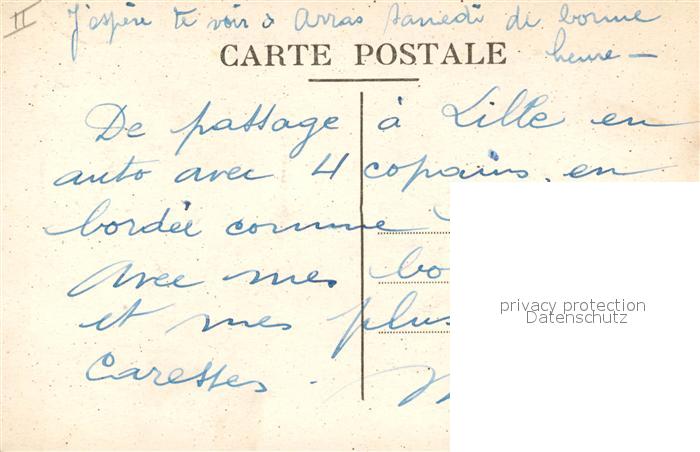 II
J'espère te voir à Arras samedi de bonne
heure —
CARTE POSTALE
De passage à Lille en
auto avec 4 copains. en
bordée comme
Avec mes bo
et mes plus
Caresses.
privacy protection
Datenschutz